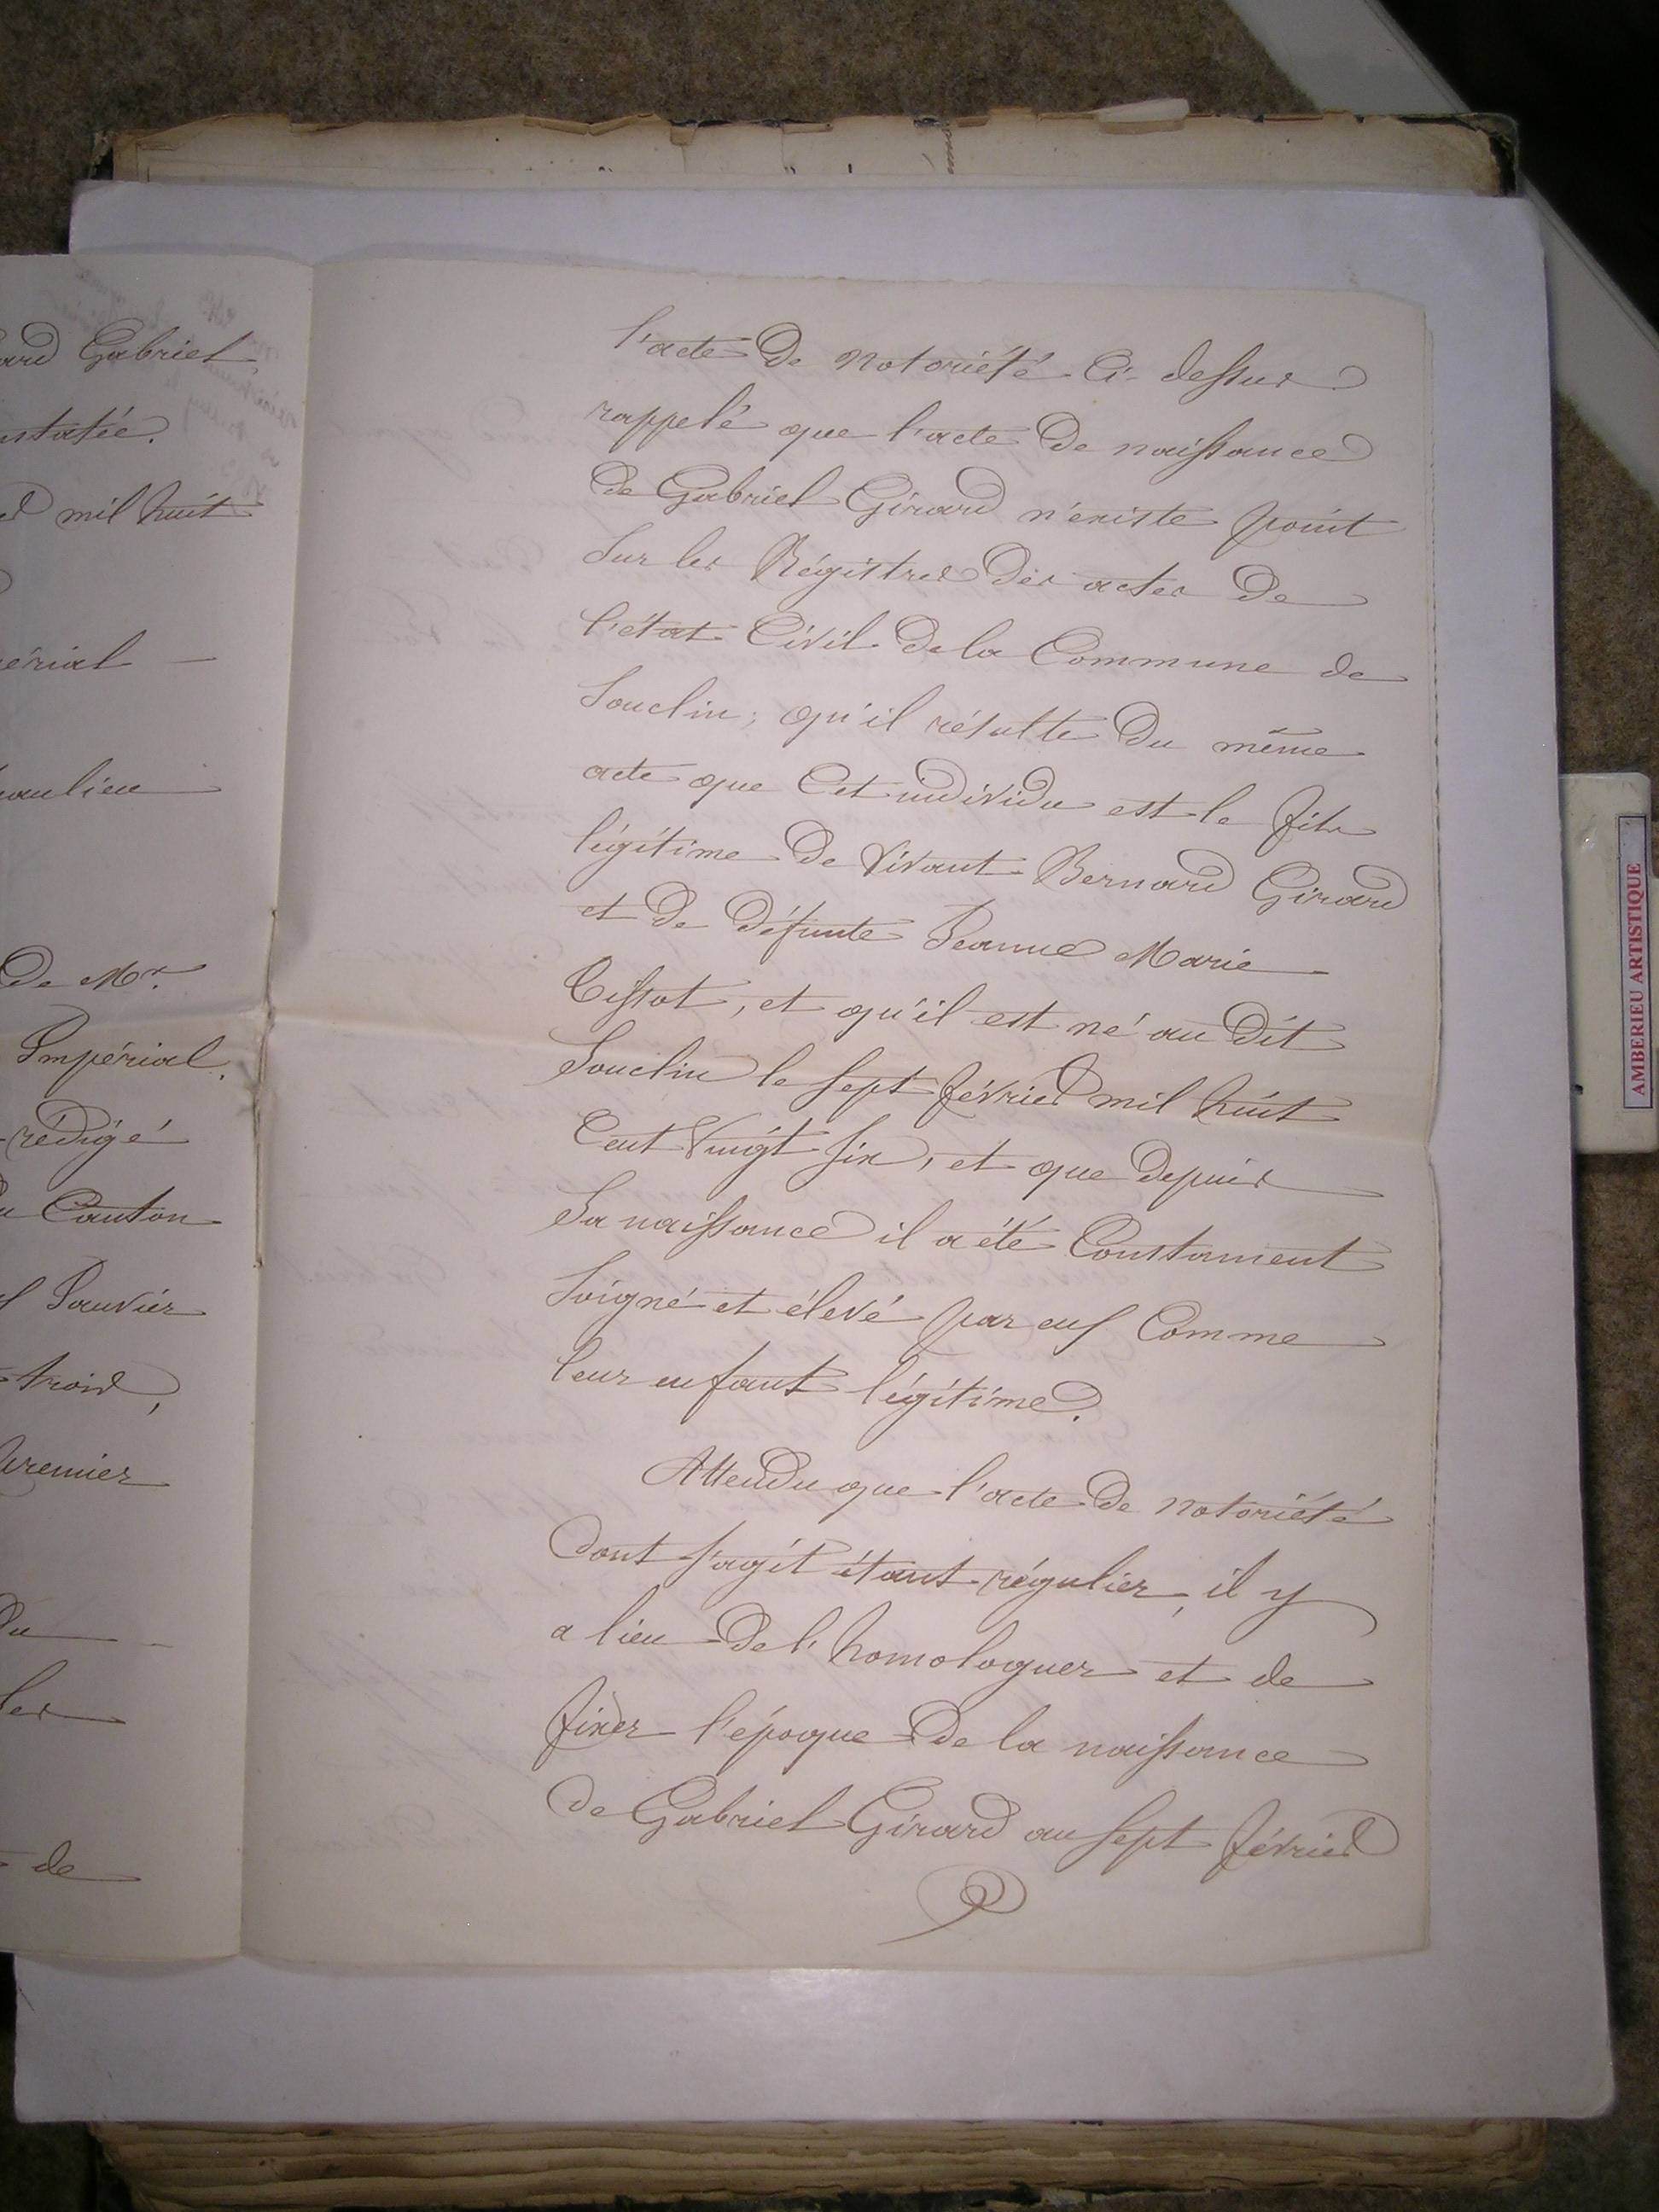 ard Gabriel,
nstatée.
mil huit
érial
aulieu
De Mr.
Impérial.
rédigé
Canton
Sauvier
trois,
premier
Du
les
de
l'acte De notoriété Ci-dessus
rappelé que l'acte De naissance
De Gabriel Girard n'existe point
Sur les Régistres Des actes De
l'état Civil De la Commune de
Souclin; qu'il résulte Du même
acte que Cet individu est le fils
légitime De vivant Bernard Girard
et De Défunte Jeanne Marie
Tissot, et qu'il est né au Dit
Souclin le Sept février mil huit
Cent Vingt Six, et que Depuis
Sa naissance il a été Constament
Soigné et élevé par eux Comme
leur enfant légitime.
Attendu que l'acte De notoriété
Dont S'agit étant régulier, il y
a lieu De l'homologuer et de
fixer l'époque De la naissance
de Gabriel Girard au Sept février
AMBERIEU ARTISTIQUE